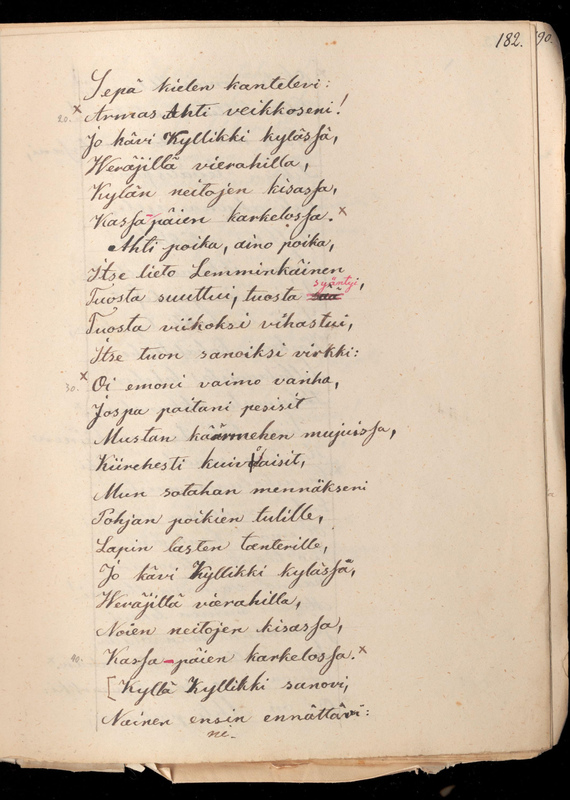 182.
90.
Sepä kielen kantelevi:
20. × Armas Ahti veikkoseni!
Jo kävi Kyllikki kylässä,
Weräjillä vierahilla,
Kylän neitojen kisassa,
Kassa-päien karkelossa. ×
Ahti poika, aino poika,
Itse lieto Lemminkäinen
Tuosta suuttui, tuosta syäntyi,
Tuosta viikoksi vihastui,
Itse tuon sanoiksi virkki:
30. × Oi emoni vaimo vanha,
Jospa paitani pesisit
Mustan käärmehen mujuissa,
Kiirehesti kuivoaisit,
Mun sotahan mennäkseni
Pohjan poikien tulille,
Lapin lasten tanterille,
Jo kävi Kyllikki kylässä,
Weräjillä vierahilla,
Noien neitojen kisassa,
40. Kassa-päien karkelossa. ×
[Kyllä Kyllikki sanovi,
Nainen ensin ennättävi:
ni-